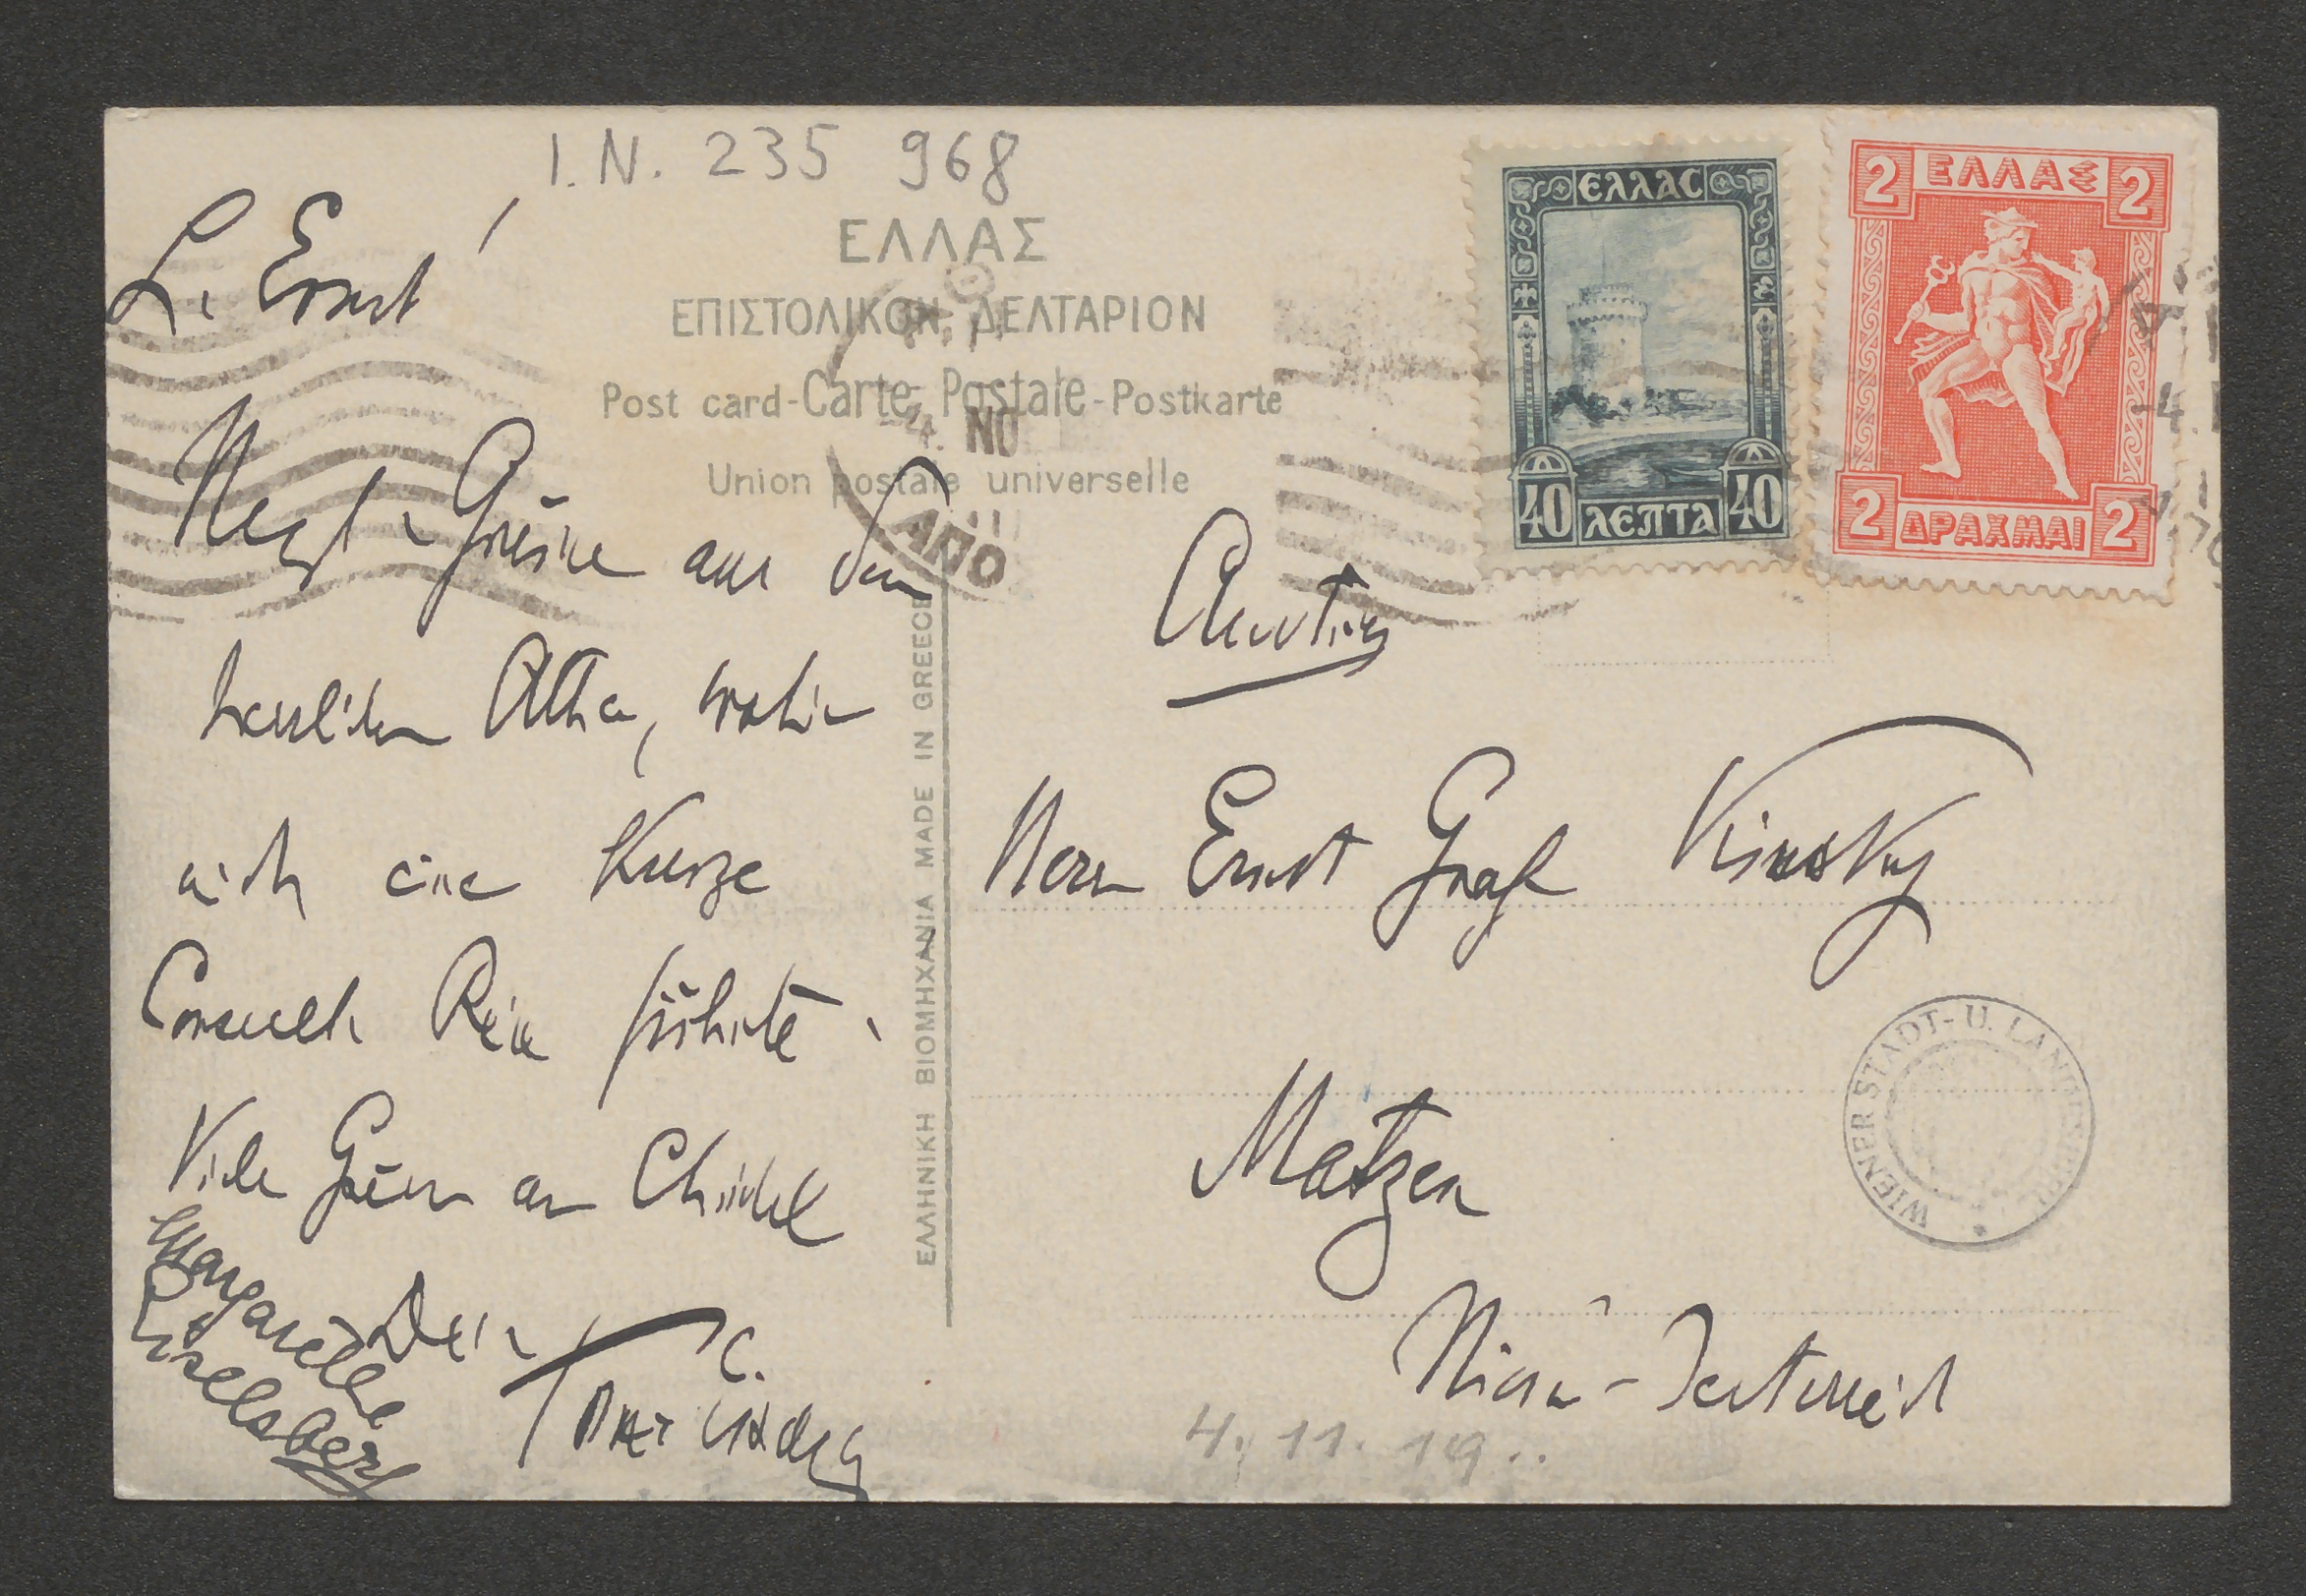 I.N. 235 968
L. Ernst!
ΕΛΛΑΣ
ΕΠΙΣΤΟΛΙΚΟΝ ΔΕΛΤΑΡΙΟΝ
Post card-Carte Postale-Postkarte
Union postale universelle
4. ΝΟ
ΑΠΟ
ΕΛΛΑC
40 ΛΕΠΤΑ 40
2 ΕΛΛΑΣ 2
2 ΔΡΑΧΜΑΙ 2
Herzl. Grüsse aus dem
herrlichen Athen, wohin
mich eine kurze
Consult. Reise führte.
Viele Grüsse an
Dein
C.
Margarethe
Eiselsberg
ΕΛΛΗΝΙΚΗ ΒΙΟΜΗΧΑΝΙΑ MADE IN GREECE
Austria
Herrn Ernst Graf Kinsky
Matzen
Nieder-Oesterreich
WIENER STADT- U. LANDESBIBL.
4. 11. 19..